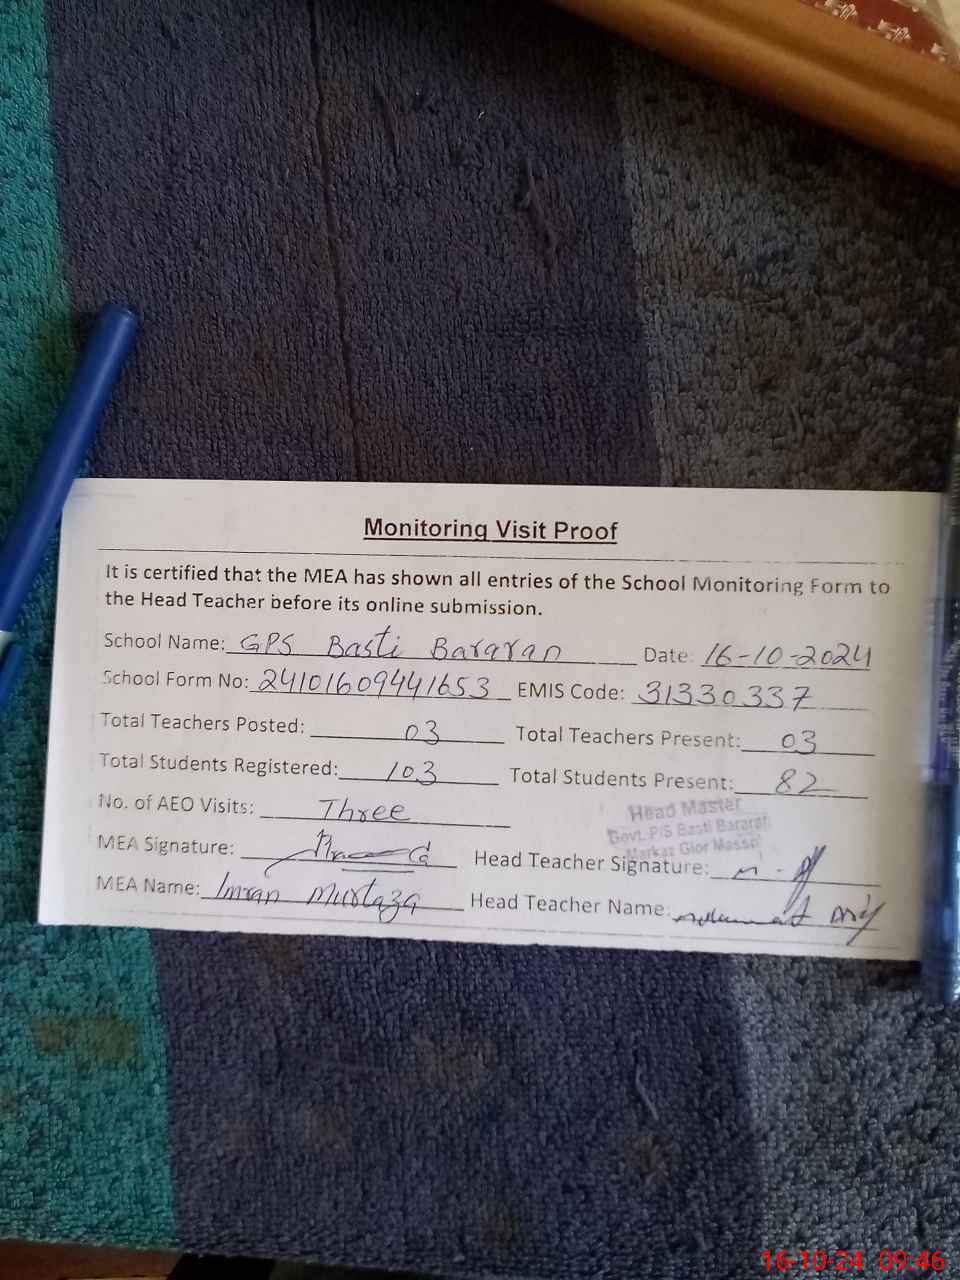 Monitoring Visit Proof
It is certified that the MEA has shown all entries of the School Monitoring Form to
the Head Teacher before its online submission.
School Name: GPS Basti Bararan Date: 16-10-2024
School Form No: 24101609441653 EMIS Code: 31330337
Total Teachers Posted: 03 Total Teachers Present: 03
Total Students Registered: 103 Total Students Present: 82
No. of AEO Visits: Three
Head Master
Govt. P/S Basti Bararan
Markaz Glor Masso
MEA Signature: Head Teacher Signature:
MEA Name: Imran Murtaza Head Teacher Name:
16-10-24 09:46